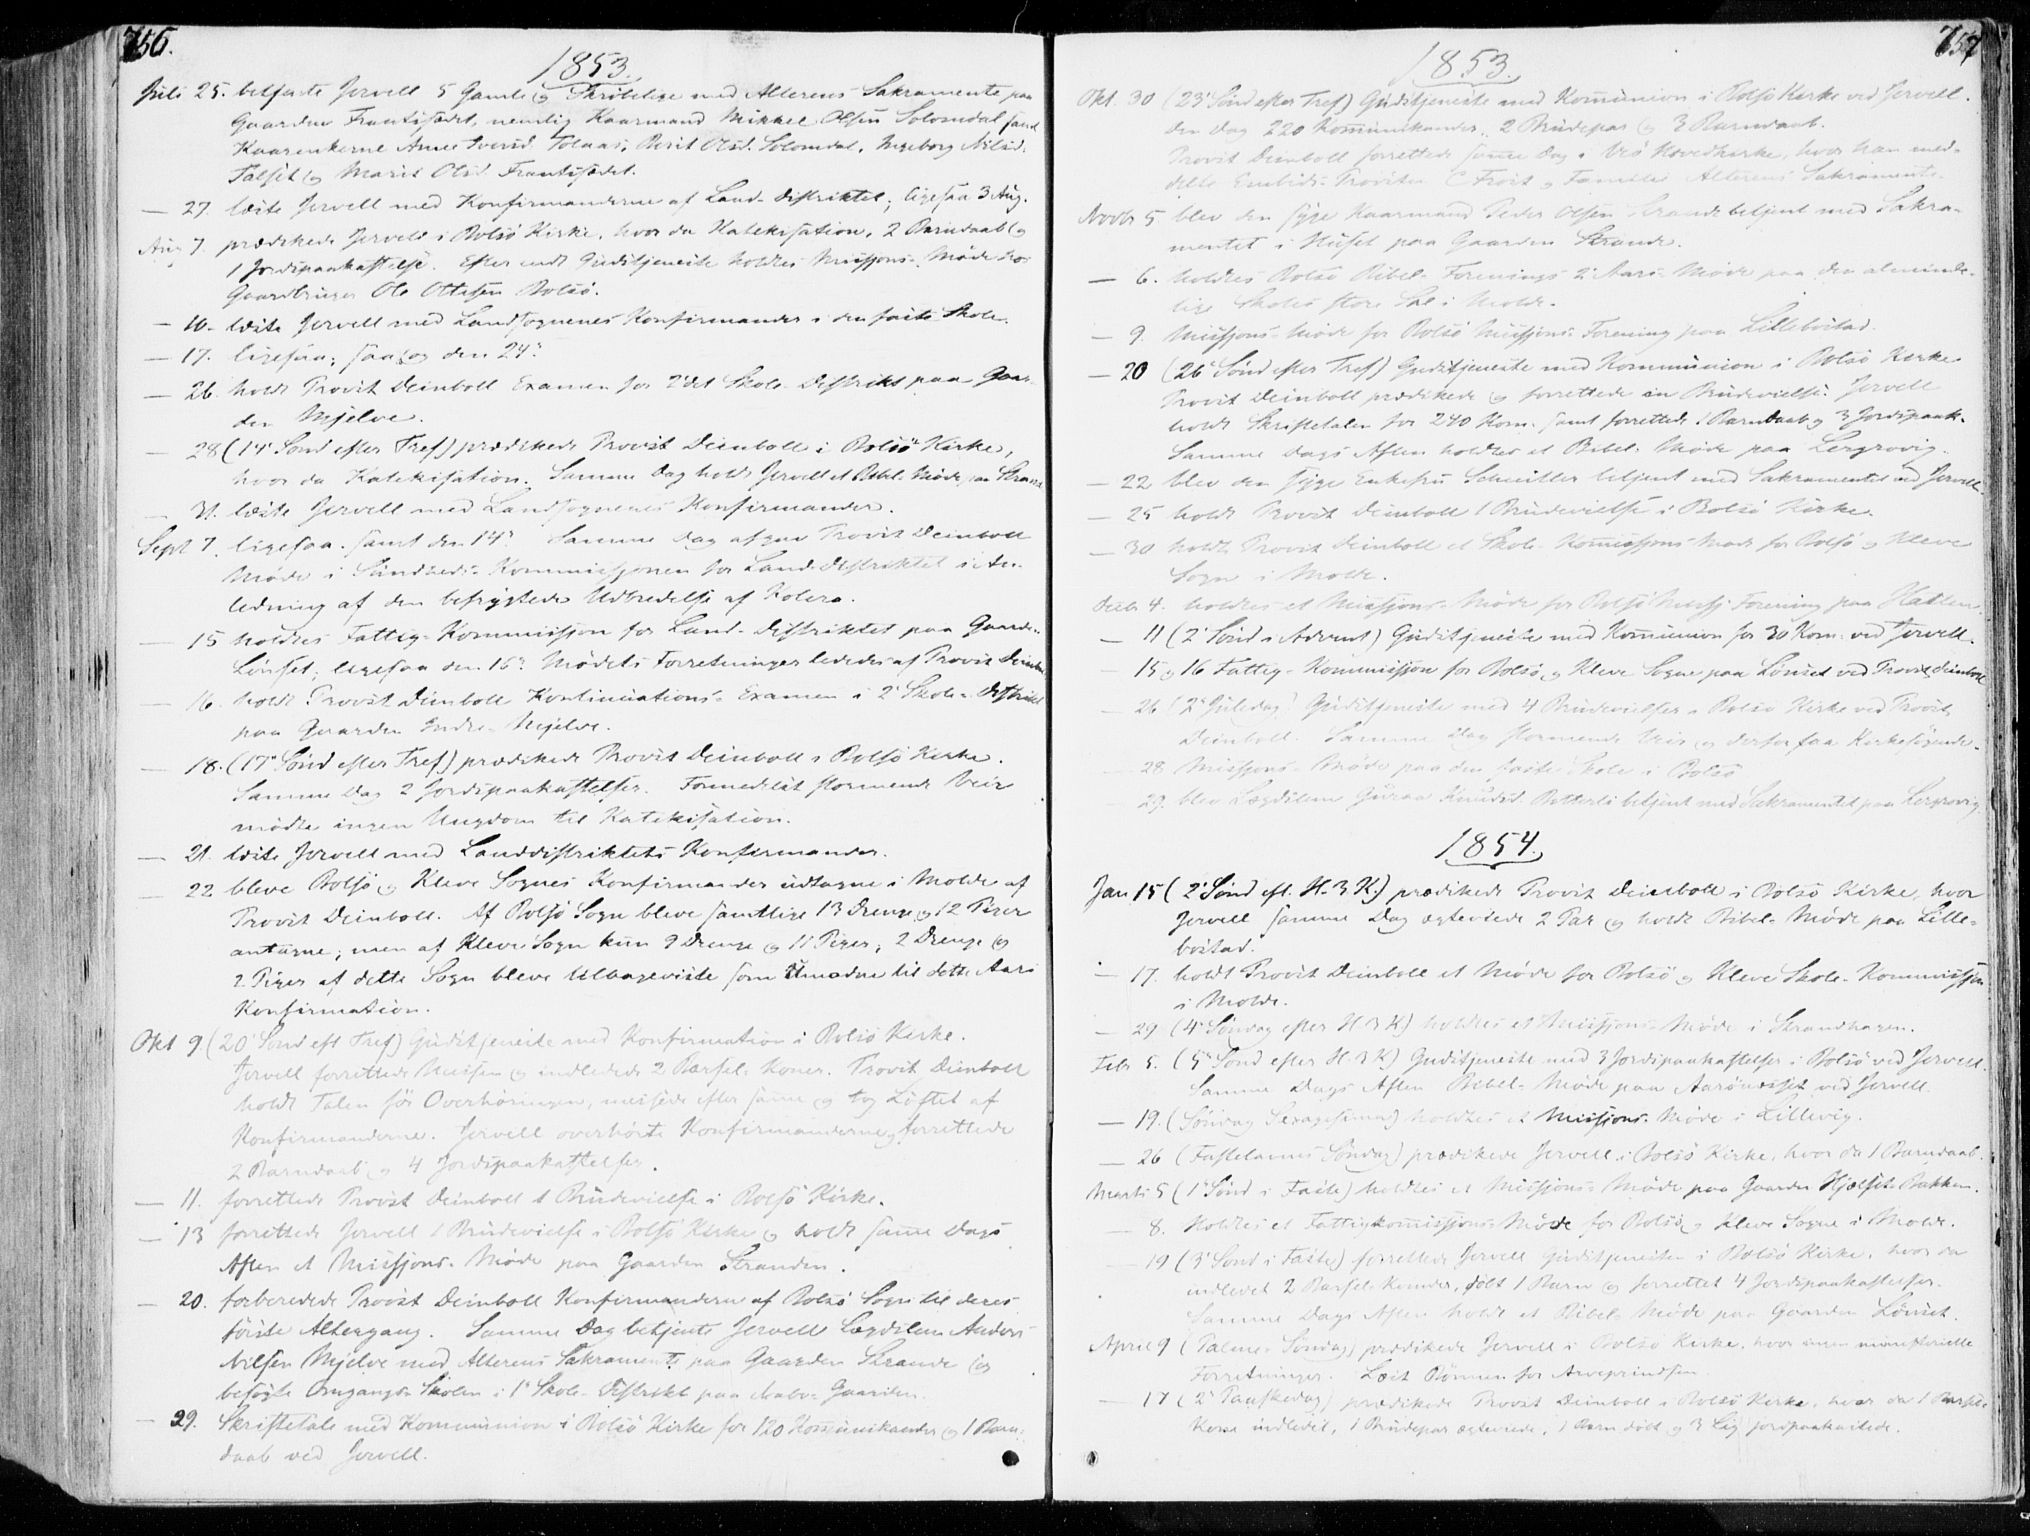 756.
1853.
Juli 25. betjente Jervell 5 Gamle og Skröbelige med Alterens Sakramente paa
Gaarden Frantisædet, nemlig Kaarmand Mikkel Olsen Solomdal samt
Kaarenkerne Anne Sversd. Tolaas, Berit Olsd. Solomdal, Ingeborg Nilsd.
Talset og Marit Olsd. Frantisædet.
— 27. læste Jervell med Konfirmanderne af Land-Distriktet; ligesaa 3 Aug.
Aug 7. prædikede Jervell i Bolsö Kirke, hvor da Katekisation, 2 Barndaab og
1 Jordspaakastelse. Efter endt Gudstjeneste holdtes Missions-Möde hos
Gaardbruger Ole Ottesen Bolsö.
— 10. læste Jervell med Landsognenes Konfirmander i den faste Skole.
— 17. ligesaa; saa og den 24de
— 26. holdt Provst Deinboll Examen for 2det Skole-Distrikt paa Gaar-
den Mjelve.
— 28 (14 Sönd efter Tref) prædikede Provst Deinboll i Bolsö Kirke,
hvor da Katekisation. Samme Dag holdt Jervell et Bibel-Möde paa Strande
— 31. læste Jervell med Landsognenes Konfirmander.
Sept 7. ligesaa. samt den 14de Samme Dag afgav Provst Deinboll
Möde i Sundheds-Kommissjonen for Land-Distriktet i An-
ledning af den befrygtede Udbredelse af Kolera.
— 15 holdtes Fattig-Kommission for Land-Distriktet paa Gaarden
Lönset; ligesaa den 16de Mödets Forretninger lededes af Provst Deinboll
— 16. holdt Provst Deinboll Kontinuations-Examen i 2 Skole-Distrikt
paa Gaarden Indre-Mjelve.
— 18. (17 Sönd efter Tref) prædikede Provst Deinboll i Bolsö Kirke.
Samme Dag 2 Jordspaakastelser. Formedelst stormende Veir
mödte ingen Ungdom til Katekisation.
— 21. læste Jervell med Landdistriktets Konfirmander.
— 22 bleve Bolsö og Kleve Sognes Konfirmander udtagne i Molde af
Provst Deinboll. Af Bolsö Sogn bleve samtlige 13 Drenge og 12 Piger
antagne; men af Kleve Sogn kun 9 Drenge og 11 Piger; 2 Drenge og
2 Piger af dette Sogn bleve tilbageviste som umodne til dette Aars
Konfirmation.
Okt 9 (20 Sönd eft Tref) Gudstjeneste med Konfirmation i Bolsö Kirke.
Jervell forrettede Messen og indledede 2 Barsel-Koner. Provst Deinboll
holdt Talen för Overhöringen, messede efter samme og tog Löftet af
Konfirmanderne. Jervell overhörte Konfirmanderne og forrettede
2 Barndaab og 4 Jordspaakastelser.
— 11. forrettede Provst Deinboll 1 Brudevielse i Bolsö Kirke.
— 13 forrettede Jervell 1 Brudevielse i Bolsö Kirke og holdt samme Dags
Aften et Missjons-Möde paa Gaarden Stranden.
— 20. forberedede Provst Deinboll Konfirmanderne af Bolsö Sogn til deres
förste Altergang. Samme Dag betjente Jervell Lægdslem Anders
Nilsen Mjelve med Alterens Sakramente paa Gaarden Strande og
besögte Omgangs-Skolen i 1 Skole-Distrikt paa Nabo-Gaarden.
— 29. Skriftetale med Kommunion i Bolsö Kirke for 120 Kommunikander og 1 Barn-
daab ved Jervell.
757
1853.
Okt. 30 (23 Sönd efter Tref) Gudstjeneste med Kommunion i Bolsö Kirke ved Jervell.
den Dag 220 Kommunikander, 2 Brudepar og 3 Barndaab.
Provst Deinboll forrettede samme Dag i Veö Hovedkirke, hvor han med-
delte Embeds-Provsten C Frost og Familie Alterens Sakramente.
Novbr 5 blev den syge Kaarmand Peder Olsen Strande betjent med Sakra-
mentet i Huset paa Gaarden Strande.
— 6. holdtes Bolsö Bibel-Forenings 2 Aars-Möde paa den alminde-
lige Skoles store Sal i Molde.
— 9. Missjons-Möde for Bolsö Missjons-Forening paa Lillebostad.
— 20 (26 Sönd efter Tref) Gudstjeneste med Kommunion i Bolsö Kirke
Provst Deinboll prædikede og forrettede en Brudevielse. Jervell
holdt Skriftetalen for 240 Kom. samt forrettede 1 Barndaab og 3 Jordspaak.
Samme Dags Aften holdtes et Bibel-Möde paa Lergrovig.
— 22 blev den syge Enkefru betjent med Sakramentet ved Jervell.
— 25 holdt Provst Deinboll 1 Brudevielse i Bolsö Kirke.
— 30 holdt Provst Deinboll et Skole-Kommissjons Möde for Bolsö og Kleve
Sogn i Molde.
Decbr 4. holdtes et Missjons-Möde for Bolsö Missj. Forening paa Hatlen.
— 11 (2 Sönd i Advent) Gudstjeneste med Kommunion for 30 Kom. ved Jervell.
— 15 og 16 Fattig-Kommission for Bolsö og Kleve Sogne paa Lönset ved Provst Deinboll
— 26 (2 Juledag) Gudstjeneste med 4 Brudevielser i Bolsö Kirke ved Provst
Deinboll. Samme Dag stormende Veir og derfor faa Kirkesögende.
— 28 Missjons-Möde paa den faste Skole i Bolsö
— 29. blev Lægdslem Guroa Knudsd. betjent med Sakramentet paa Lergrovig.
1854.
Jan 15 (2 Sönd eft. H. 3 K.) prædikede Provst Deinboll i Bolsö Kirke, hvor
Jervell samme Dag ægteviede 2 Par og holdt Bibel-Möde paa Lille-
bostad.
— 17. holdt Provst Deinboll et Möde for Bolsö og Kleve Skole-Kommission
i Molde.
— 29 (4 Söndag efter H 3 K) holdtes et Missjons-Möde i Strandhagen.
Febr 5. (5 Sönd efter H. 3 K) Gudstjeneste med 3 Jordspaakastelser i Bolsö ved Jervell.
Samme Dags Aften Bibel-Möde paa Aarönæsset ved Jervell.
— 19. (Söndag Sexagesima) holdtes et Missjons-Möde i Lillevig.
— 26 (Fastelavns Söndag) prædikede Jervell i Bolsö Kirke, hvor da 1 Barndaab.
Marts 5 (1 Sönd i Faste) holdtes et Missjons-Möde paa Gaarden Hjelset-Bakken.
— 8. Holdtes et Fattigkommissjons-Möde for Bolsö og Kleve Sogne i Molde.
— 19 (3 Sönd i Faste) forrettede Jervell Gudstjenesten i Bolsö Kirke, hvor da
indledet 2 Barsel-Konder, döbt 1 Barn og forrettet 4 Jordspaakastelser.
Samme Dags Aften holdt et Bibel-Möde paa Gaarden Lönset.
April 9 (Palme-Söndag) prædikede Jervell i Bolsö Kirke, hvor ingen ministerielle
Forretninger. Læst Bönnen for Arveprindsen.
— 17 (2 Paaskedag) prædikede Provst Deinboll i Bolsö Kirke, hvor da 1 Barsel-
Kone indledet, 1 Brudepar ægteviede, 1 Barn döbt og 3 Lig jordpaakastede.